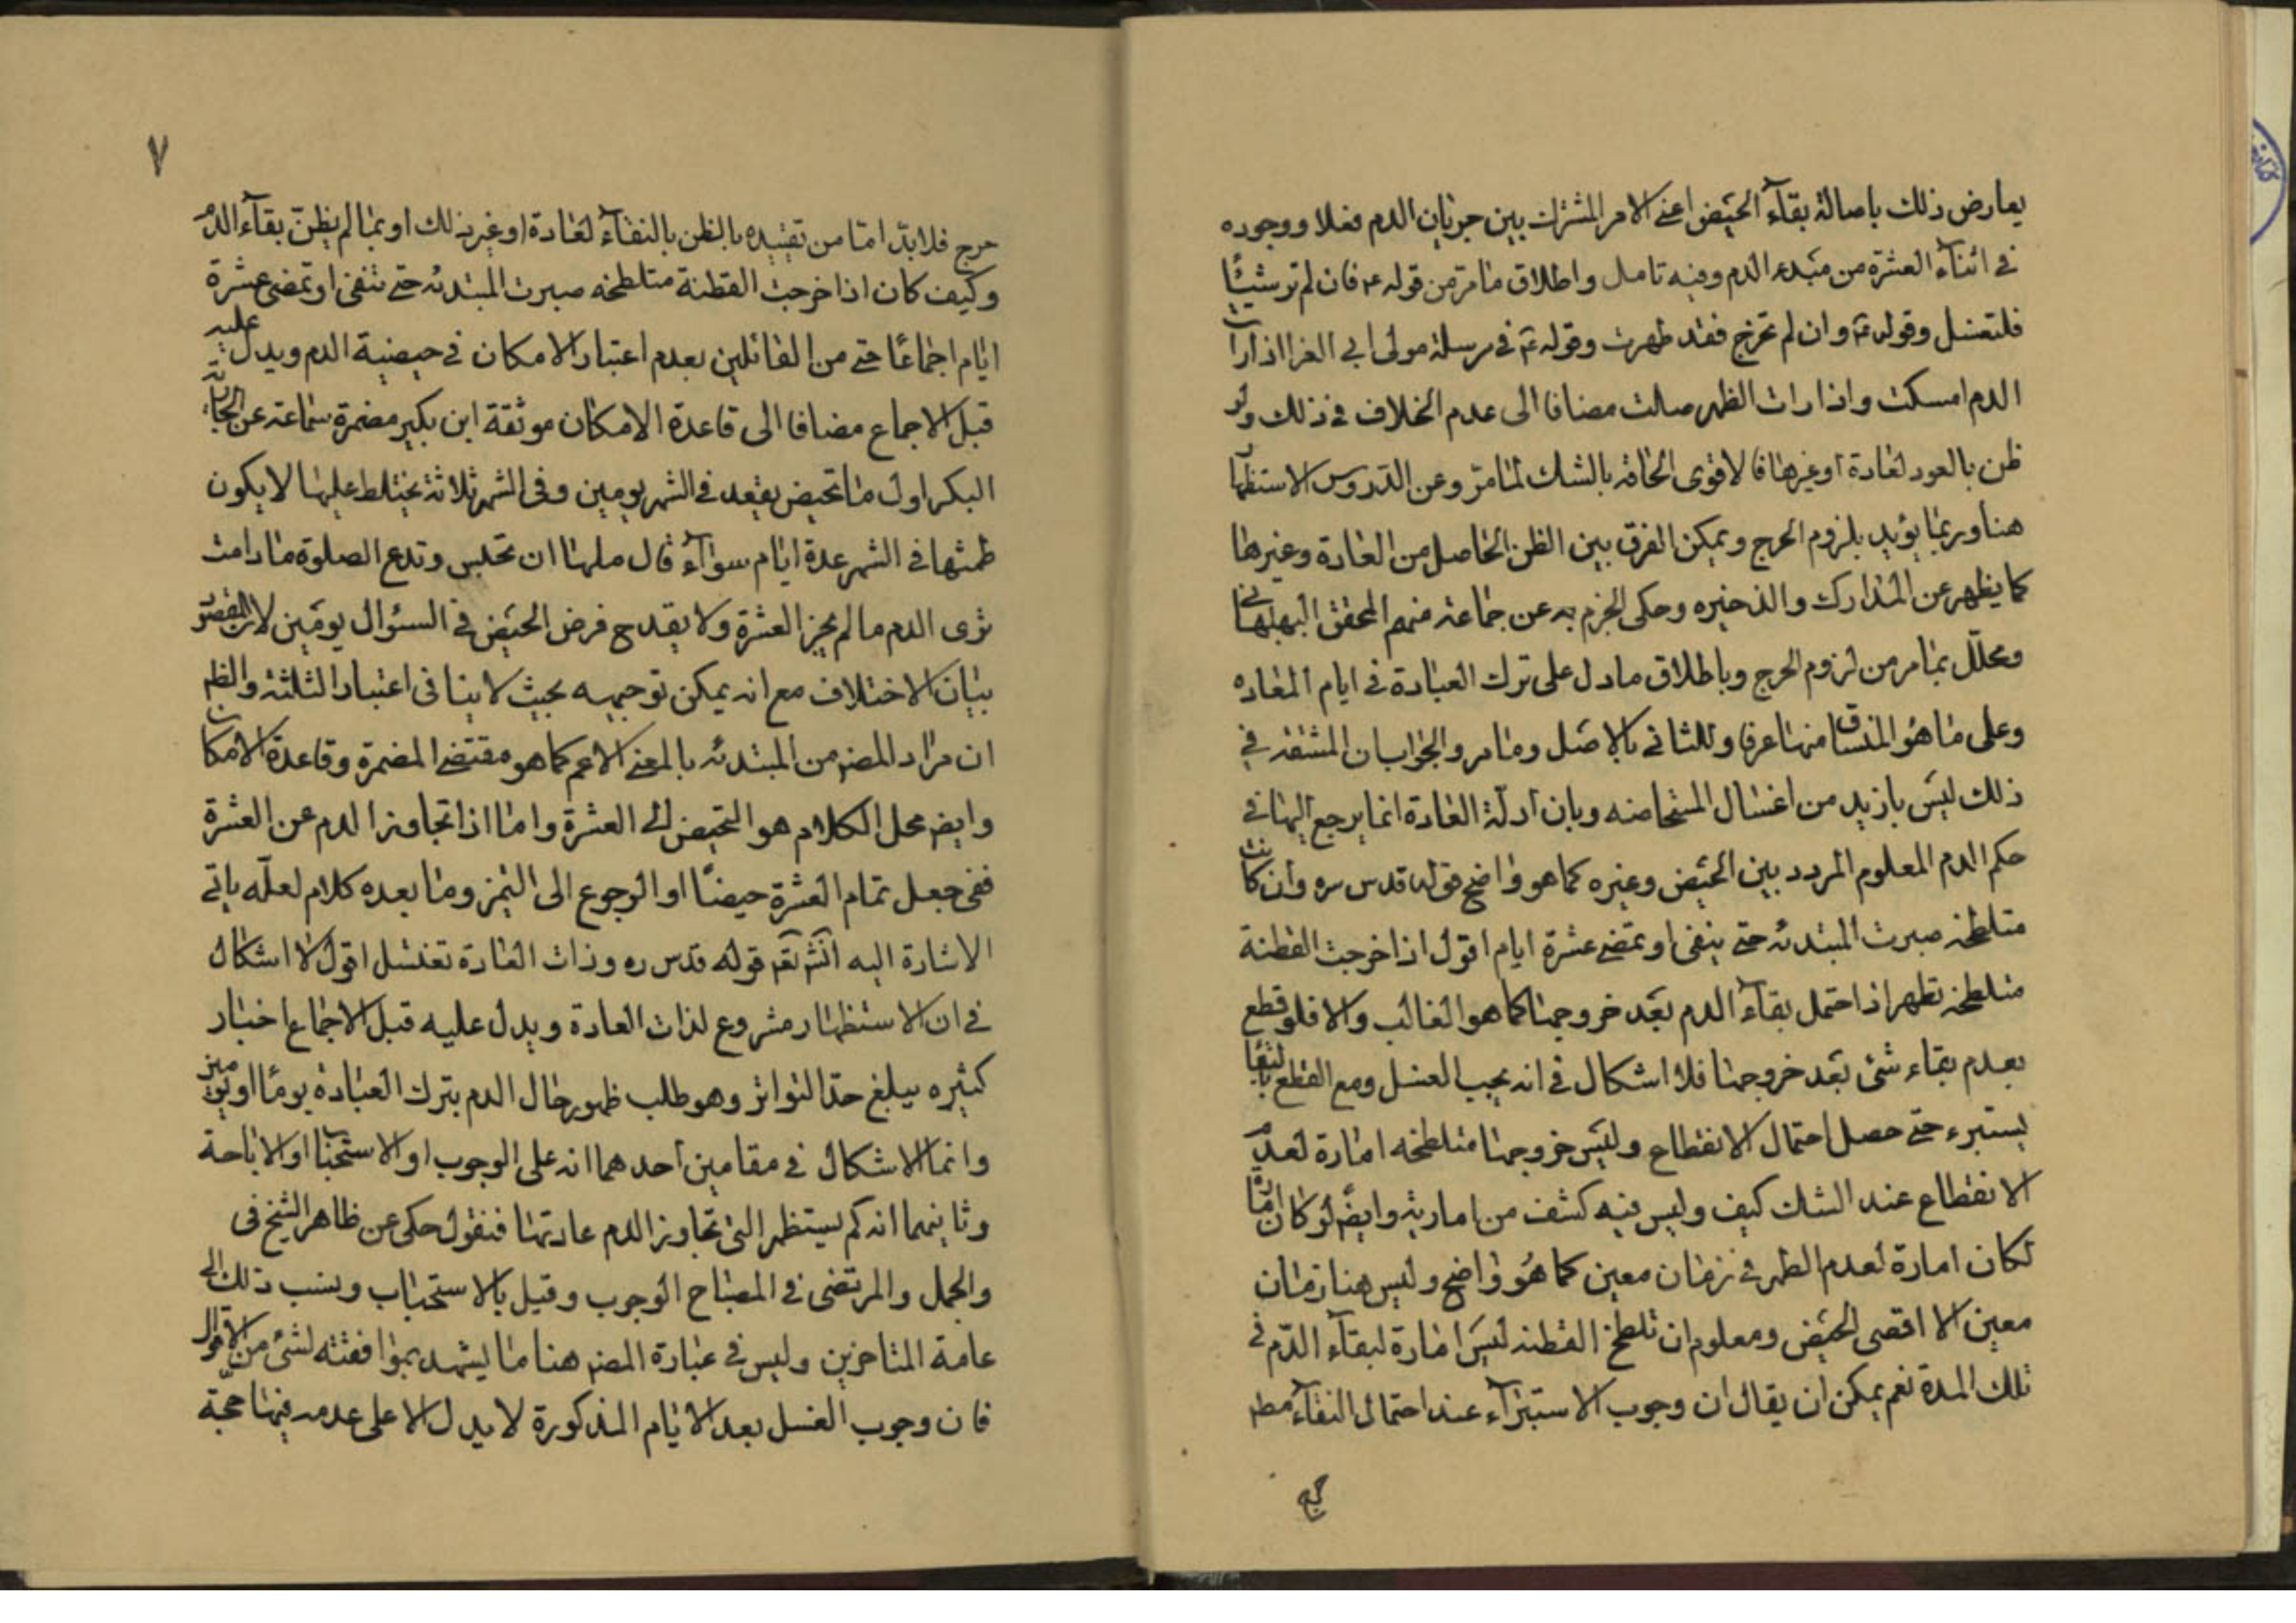 يعارض ذلك باصالة بقآء الحيض اعنى الامر المشترك بين جريان الدم فعلا ووجوده
فى اثناء العشرة من مبدء الدم وفيه تامل واطلاق ما مرّ من قوله ع فان لم تر شيئًا
فلتغتسل وقوله ع وان لم تخرج فقد طهرت وقوله ع فى مرسلة مولى ابى المغرا اذا رات
الدم امسكت واذا رات الطهر صلت مضافا الى عدم الخلاف فى ذلك ولو
ظن بالعود لعادة او غيرها فالاقوى الحاقه بالشك لما مرّ وعن الدروس الاستظهار
هنا وربما يؤيد بلزوم الحرج ويمكن الفرق بين الظن الحاصل من العادة وغيرها
كما يظهر عن المدارك والذخيره وحكى الجزم به عن جماعة منهم المحقق البهبهانى
ومحلّل بما مر من لزوم الحرج وباطلاق ما دل على ترك العبادة فى ايام المعاده
وعلى ما هو المنساق منها عرفا وللثانى بالاصل وما مر والجواب ان المشقة فى
ذلك ليس بازيد من اغسال المستحاضه وبان ادلّة العادة انما يرجع اليها فى
حكم الدم المعلوم المردد بين الحيض وغيره كما هو واضح قوله قدس سره وان كانت
متلطخة صبرت المبتدئه حتى ينقى او تمضى عشرة ايام اقول اذا خرجت القطنة
متلطخة تطهر اذا احتمل بقآء الدم بعد خروجها كما هو الغالب والا فلو قطع
بعدم بقاء شئ بعد خروجها فلا اشكال فى انه يجب الغسل ومع القطع بالبقا
يستبرء حتى حصل احتمال الانقطاع وليس خروجها متلطخه امارة لعدم
الانقطاع عند الشك كيف وليس فيه كشف من اماريته وايضًا لو كان امارة
لكان امارة لعدم الطهر فى زمان معين كما هو واضح وليس هنا زمان
معين الا اقصى الحيض ومعلوم ان تلطخ القطنه ليس امارة لبقآء الدّم فى
تلك المدة نعم يمكن ان يقال ان وجوب الاستبرآء عند احتمال النقآء مط
٧
حرج فلا بدّ امّا من تقييده بالظن بالنقآء لعادة او غير ذلك او بما لم يظنّ بقآء الدم
وكيف كان اذا خرجت القطنة متلطخه صبرت المبتدئه حتى تنقى او تمضى عشرة
ايام اجماعًا حتى من القائلين بعدم اعتبار الامكان فى حيضية الدم ويدل عليه
قبل الاجماع مضافا الى قاعدة الامكان موثقة ابن بكير مضمرة سماعة عن الجارية
البكر اول ما تحيض يقعد فى الشهر يومين وفى الشهر ثلاثة يختلط عليها لا يكون
طمثها فى الشهر عدة ايام سوآء قال فلها ان تجلس وتدع الصلوة ما دامت
ترى الدم ما لم يجز العشرة ولا يقدح فرض الحيض فى السئوال يومين لان المقصود
بيان الاختلاف مع انه يمكن توجيهه بحيث لا ينافى اعتبار الثلثة والظ
ان مراد المصنف من المبتدئه بالمعنى الاعم كما هو مقتضى المضمرة وقاعدة الامكان
وايض محل الكلام هو التحيض الى العشرة واما اذا تجاوز الدم عن العشرة
ففى جعل تمام العشرة حيضًا او الرجوع الى التميز وما بعده كلام لعلّه ياتى
الاشارة اليه انش تعم قوله قدس ره وذات العادة تغتسل اقول لا اشكال
فى ان الاستظهار مشروع لذات العادة ويدل عليه قبل الاجماع اخبار
كثيره يبلغ حدّ التواتر وهو طلب ظهور حال الدم بترك العبادة يومًا او يومين
وانما الاشكال فى مقامين احدهما انه على الوجوب او الاستحباب او الاباحة
وثانيهما انه كم يستظهر التى تجاوز الدم عادتها فنقول حكى عن ظاهر الشيخ فى
والجمل والمرتضى فى المصباح الوجوب وقيل بالاستحباب وينسب ذلك الى
عامة المتاخرين وليس فى عبارة المصنف هنا ما يشهد بموافقته لشئ من الاقوال
فان وجوب الغسل بعد الايام المذكورة لا يدل الا على عدمه فيها حجة